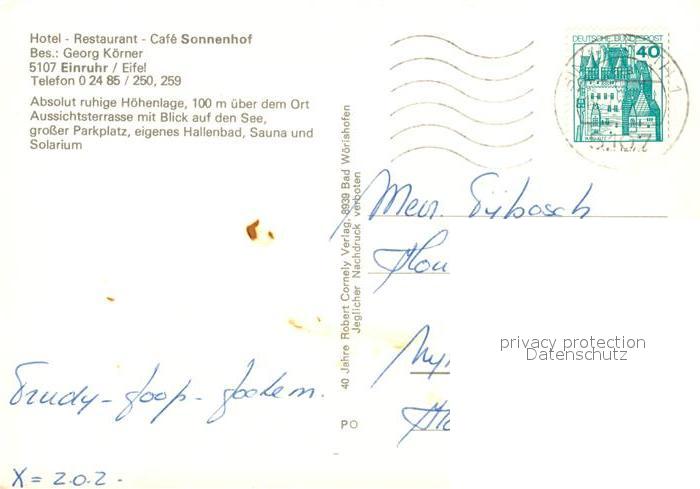 Hotel - Restaurant - Café Sonnenhof
Bes.: Georg Körner
5107 Einruhr / Eifel
Telefon 0 24 85 / 250, 259
Absolut ruhige Höhenlage, 100 m über dem Ort
Aussichtsterrasse mit Blick auf den See,
großer Parkplatz, eigenes Hallenbad, Sauna und
Solarium
40 Jahre Robert Cornely Verlag, 8939 Bad Wörishofen
Jeglicher Nachdruck verboten
PO
DEUTSCHE BUNDESPOST
40
5107
privacy protection
Datenschutz
Trudy - Joop - Jochem.
X = 2.0.2 -